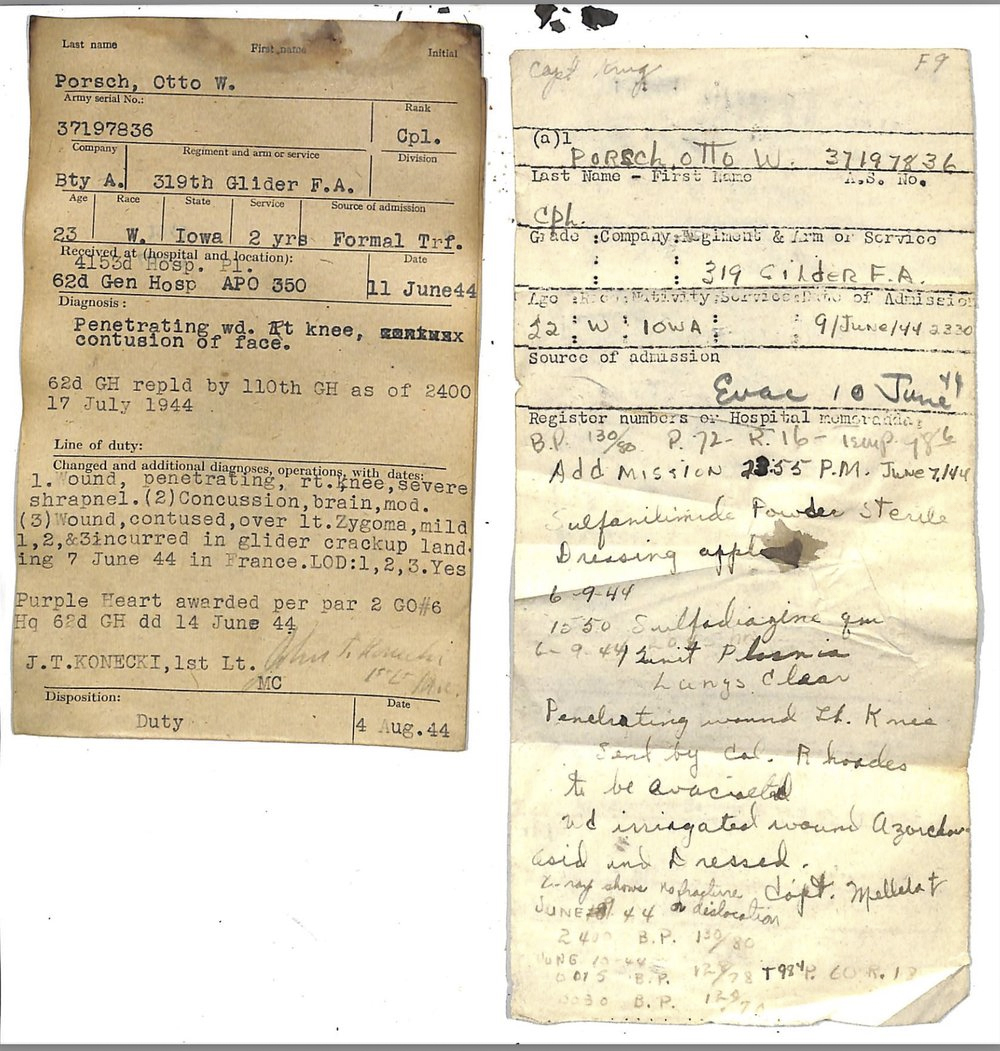 Last name First name Initial
Porsch, Otto W.
Army serial No.: Rank
37197836 Cpl.
Company Regiment and arm or service Division
Bty A. 319th Glider F.A.
Age Race State Service Source of admission
23 W. Iowa 2 yrs Formal Trf.
Received at (hospital and location): Date
4153d Hosp. Pl.
62d Gen Hosp APO 350 11 June44
Diagnosis:
Penetrating wd. rt knee,
contusion of face.
62d GH repld by 110th GH as of 2400
17 July 1944
Line of duty:
Changed and additional diagnoses, operations, with dates:
1.Wound, penetrating, rt.knee,severe
shrapnel.(2)Concussion,brain,mod.
(3)Wound,contused,over lt.Zygoma,mild
1,2,&3incurred in glider crackup land-
ing 7 June 44 in France.LOD:1,2,3.Yes
Purple Heart awarded per par 2 GO#6
Hq 62d GH dd 14 June 44
J.T.KONECKI,1st Lt.
MC
Disposition: Date
Duty 4 Aug.44
Capt Krug F9
(a)1
PORSCH, OTTO W. 37197836
Last Name - First Name A.S. No.
Cpl.
Grade :Company:Regiment & Arm or Service
: : 319 GilDER F.A.
Age :Race:Nativity:Service:Date of Admission
22 : W : IOWA : : 9/June/44 2330
Source of admission
Evac 10 June 44
Register numbers or Hospital memoranda:
B.P. 130/80 P. 72- R. 16- Temp 986
AddMISSION 2355 P.M. June 7, /44
Sulfanilimide Powder Sterile
Dressing appl
6-9-44
1550 Sulfadiazine gm
6-9-44 1 unit Plasma
Lungs Clear
Penetrating wound Lt. Knee
Send by Col. Rhoades
to be
irrigated wound
and Dressed.
X-ray shows no fracture Capt.
JUNE 9 44 or dislocation
2400 B.P. 130/80
JUNE 10-44
0015 B.P. 128/78 T 984 P. 60 R. 18
0030 B.P.